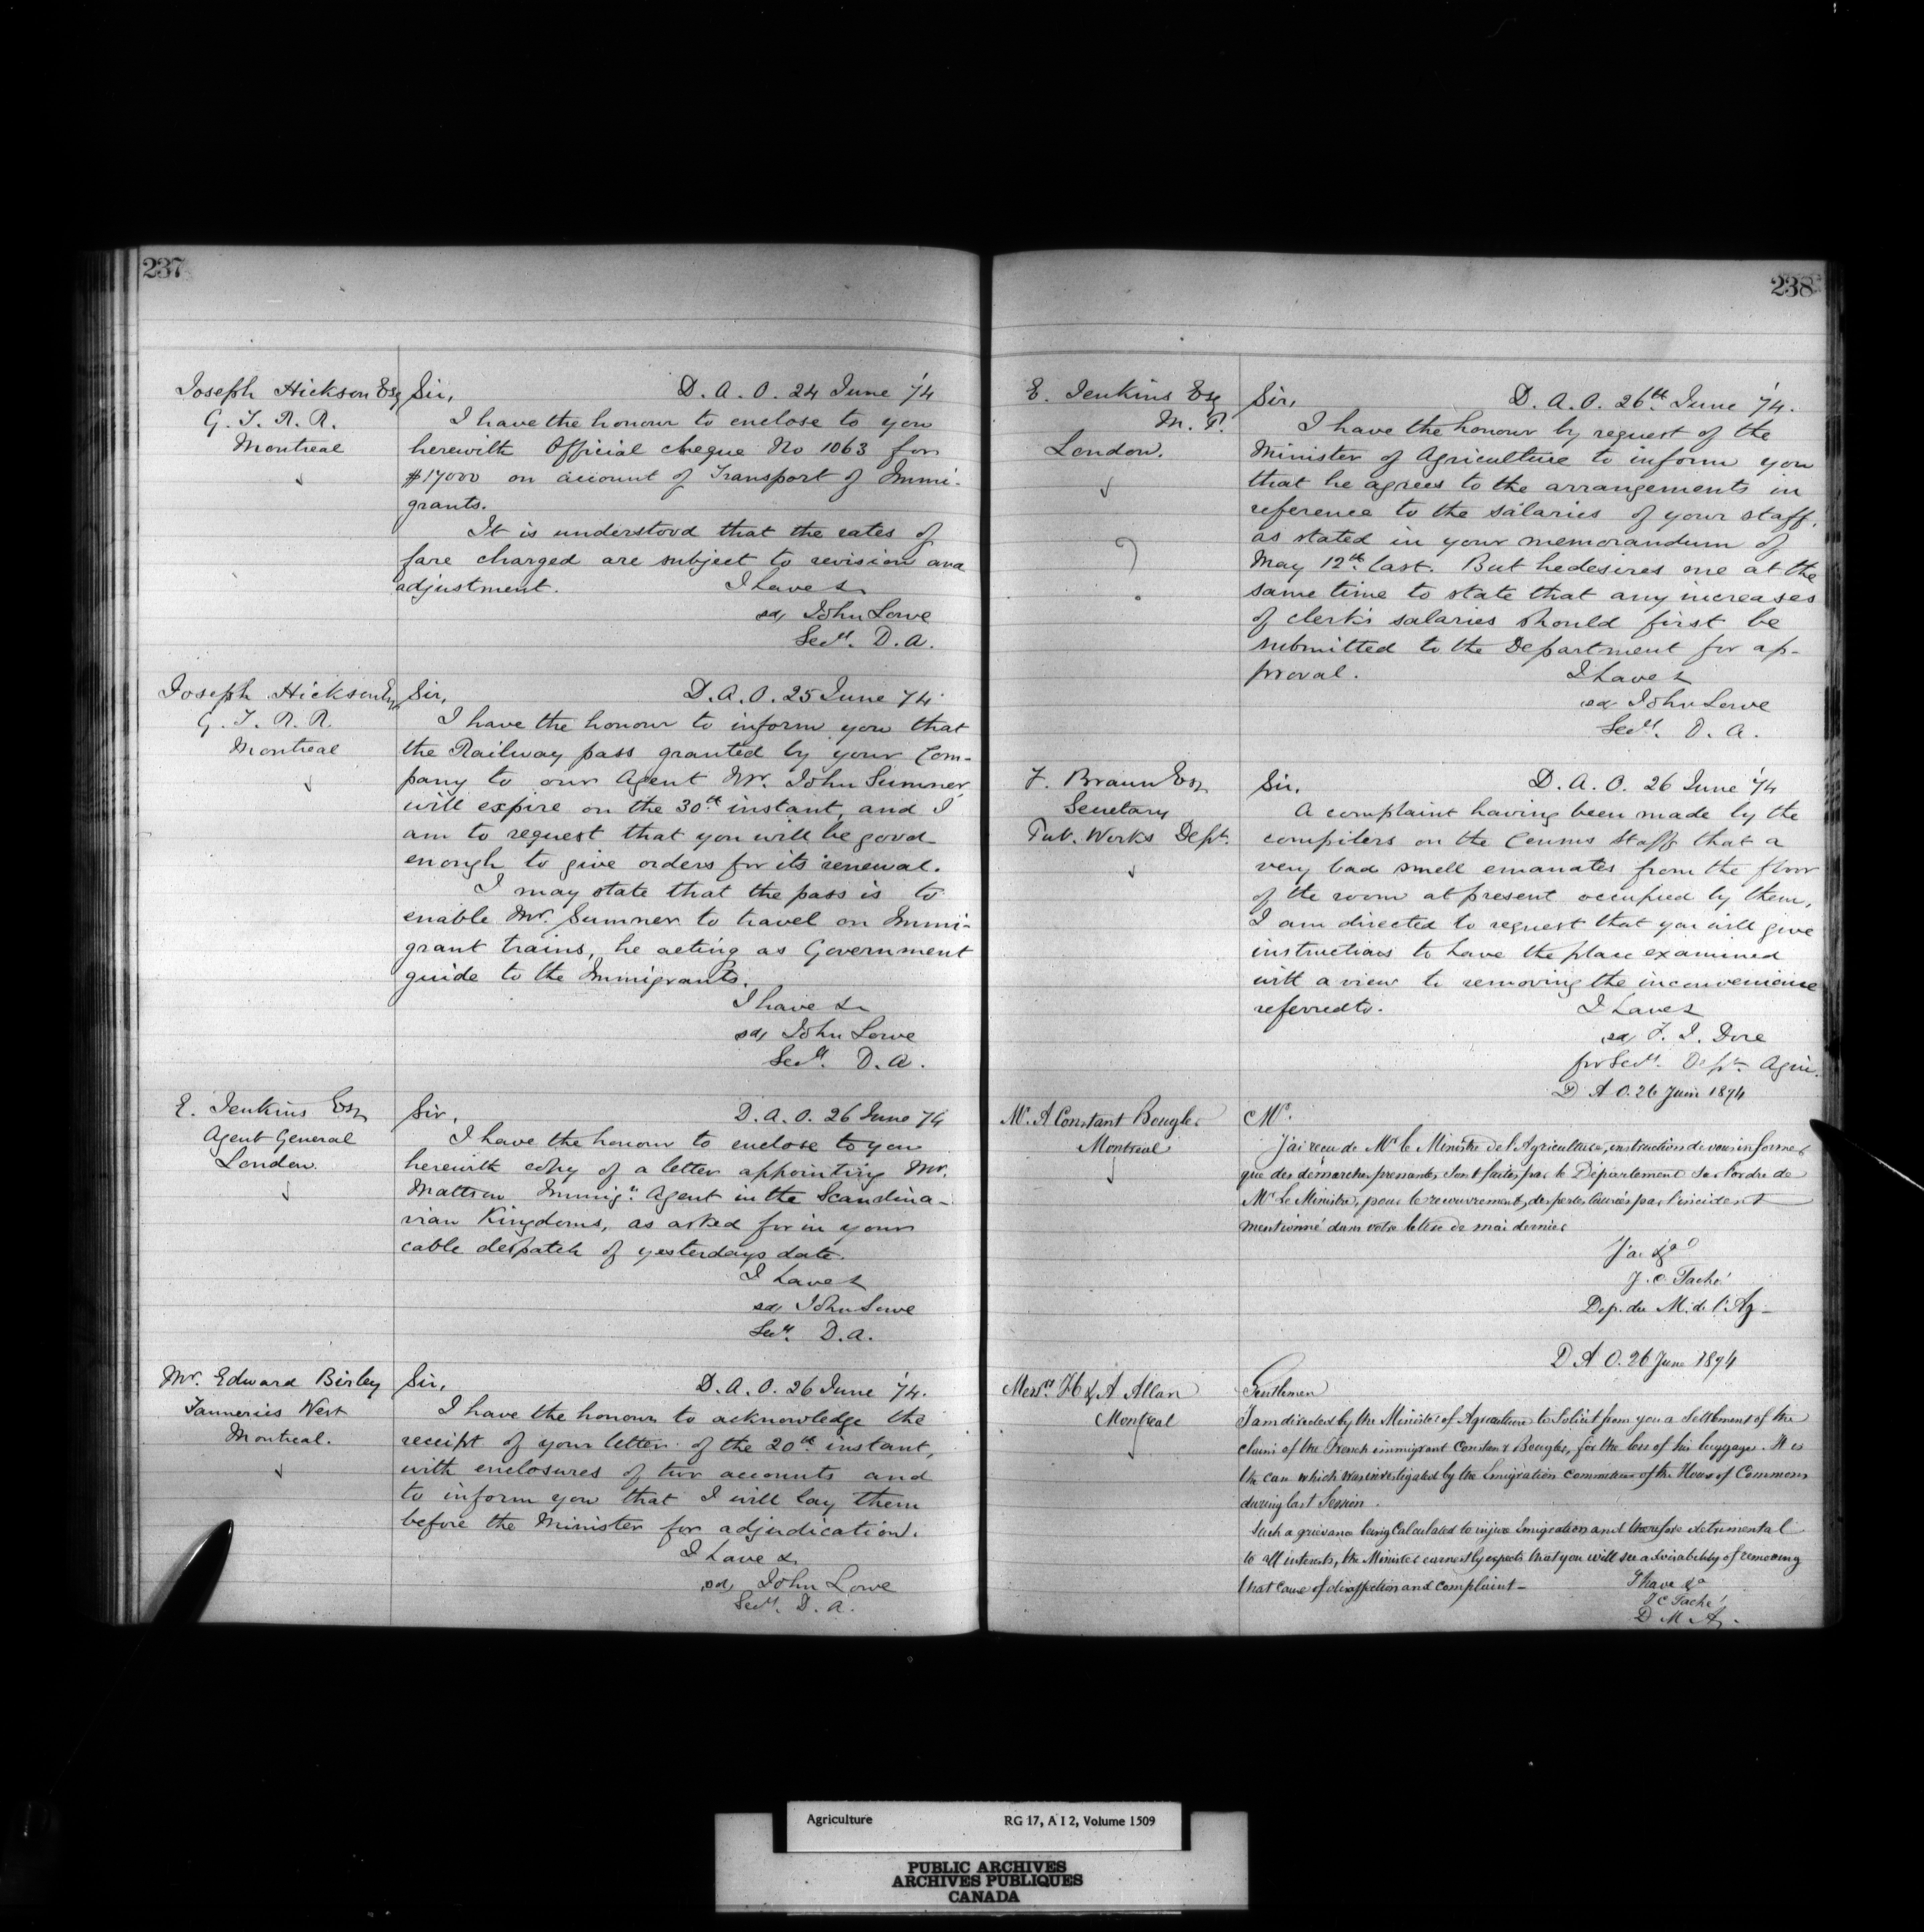 237
Joseph Hickson Esq
G. T. R. R.
Montreal
Sir, D. A. O. 24 June '74
I have the honour to enclose to you
herewith Official cheque No 1063 for
$17000 on account of Transport of Immi-
grants.
It is understood that the rates of
fare charged are subject to revision and
adjustment. I have &
sd, John Lowe
Secy. D. A.
Joseph Hickson Esq
G. T. R. R.
Montreal
Sir, D. A. O. 25 June 74
I have the honour to inform you that
the Railway pass granted by your Com-
pany to our Agent Mr. John Sumner
will expire on the 30th instant, and I
am to request that you will be good
enough to give orders for its renewal.
I may state that the pass is to
enable Mr. Sumner to travel on Immi-
grant trains, he acting as Government
guide to the Immigrants.
I have &
sd, John Lowe
Secy. D. A.
E. Jenkins Esq
Agent General
London.
Sir, D. A. O. 26 June 74
I have the honour to enclose to you
herewith copy of a letter appointing Mr.
Mattson Immign. Agent in the Scandina-
vian Kingdoms, as asked for in your
cable despatch of yesterdays date.
I have &
sd, John Lowe
Secy. D. A.
Mr. Edward Birley
Tanneries West
Montreal.
Sir, D. A. O. 26 June '74.
I have the honour to acknowledge the
receipt of your letter of the 20th instant,
with enclosures of two accounts and
to inform you that I will lay them
before the Minister for adjudication.
I have &
sd, John Lowe
Secy. D. A.
238
E. Jenkins Esq
M. P.
London.
?
Sir, D. A. O. 26th June '74.
I have the honour by request of the
Minister of Agriculture to inform you
that he agrees to the arrangements in
reference to the salaries of your staff,
as stated in your memorandum of
May 12th last. But he desires me at the
same time to state that any increases
of clerk's salaries should first be
submitted to the Department for ap-
proval. I have &
sd John Lowe
Secy. D. A.
F. Braun Esq
Secretary
Pub. Works Dept.
Sir, D. A. O. 26 June '74
A complaint having been made by the
compilers on the Census Staff that a
very bad smell emanates from the floor
of the room at present occupied by them,
I am directed to request that you will give
instructions to have the place examined
with a view to removing the inconvenience
referred to. I have &
sd, F. I. Dore
for Secy. Dept. Agri.
D A O. 26 Juin 1874
Mr. A Constant Bougler
Montreal
Mr.
J'ai reçu de Mr le Ministre de l'Agriculture, instruction de vous informer
que des démarches pressantes sont faites par le Département sur l'ordre de
Mr le Ministre, pour le recouvrement des pertes par l'incident
mentionné dans votre lettre de mai dernier
J'ai &a
J. C. Taché
Dep. du M. de l'Ag-
D A O. 26 June 1874
Messrs. H & A Allan
Montreal
Gentlemen
I am directed by the Minister of Agriculture to Solicit from you a Settlement of the
claim of the French immigrant Constant Bougler, for the loss of his luggage. It is
the case which was investigated by the Emigration committee of the House of Commons
during last Session.
Such a grievance being Calculated to injure Emigration and therefore detrimental
to all interests, the Minister earnestly expects that you will see advisability of removing
that cause of disaffection and complaint-
I have &a
J C Taché
D M A.
Agriculture RG 17, A I 2, Volume 1509
PUBLIC ARCHIVES
ARCHIVES PUBLIQUES
CANADA